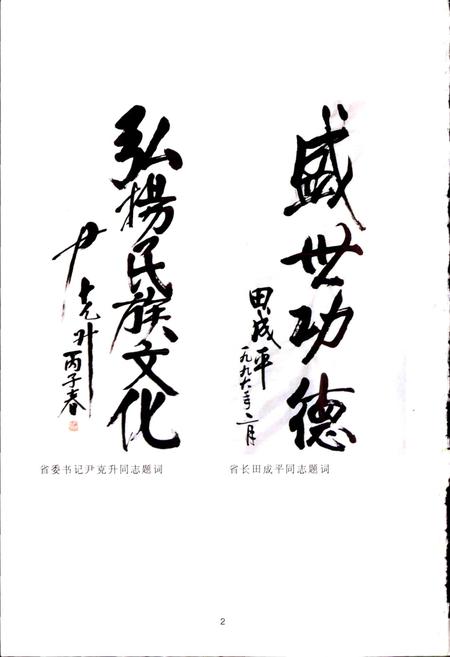 盛世功德
田成平
一九九六年二月
弘揚民族文化
尹克升
丙子春
省委书记尹克升同志题词
省长田成平同志题词
2